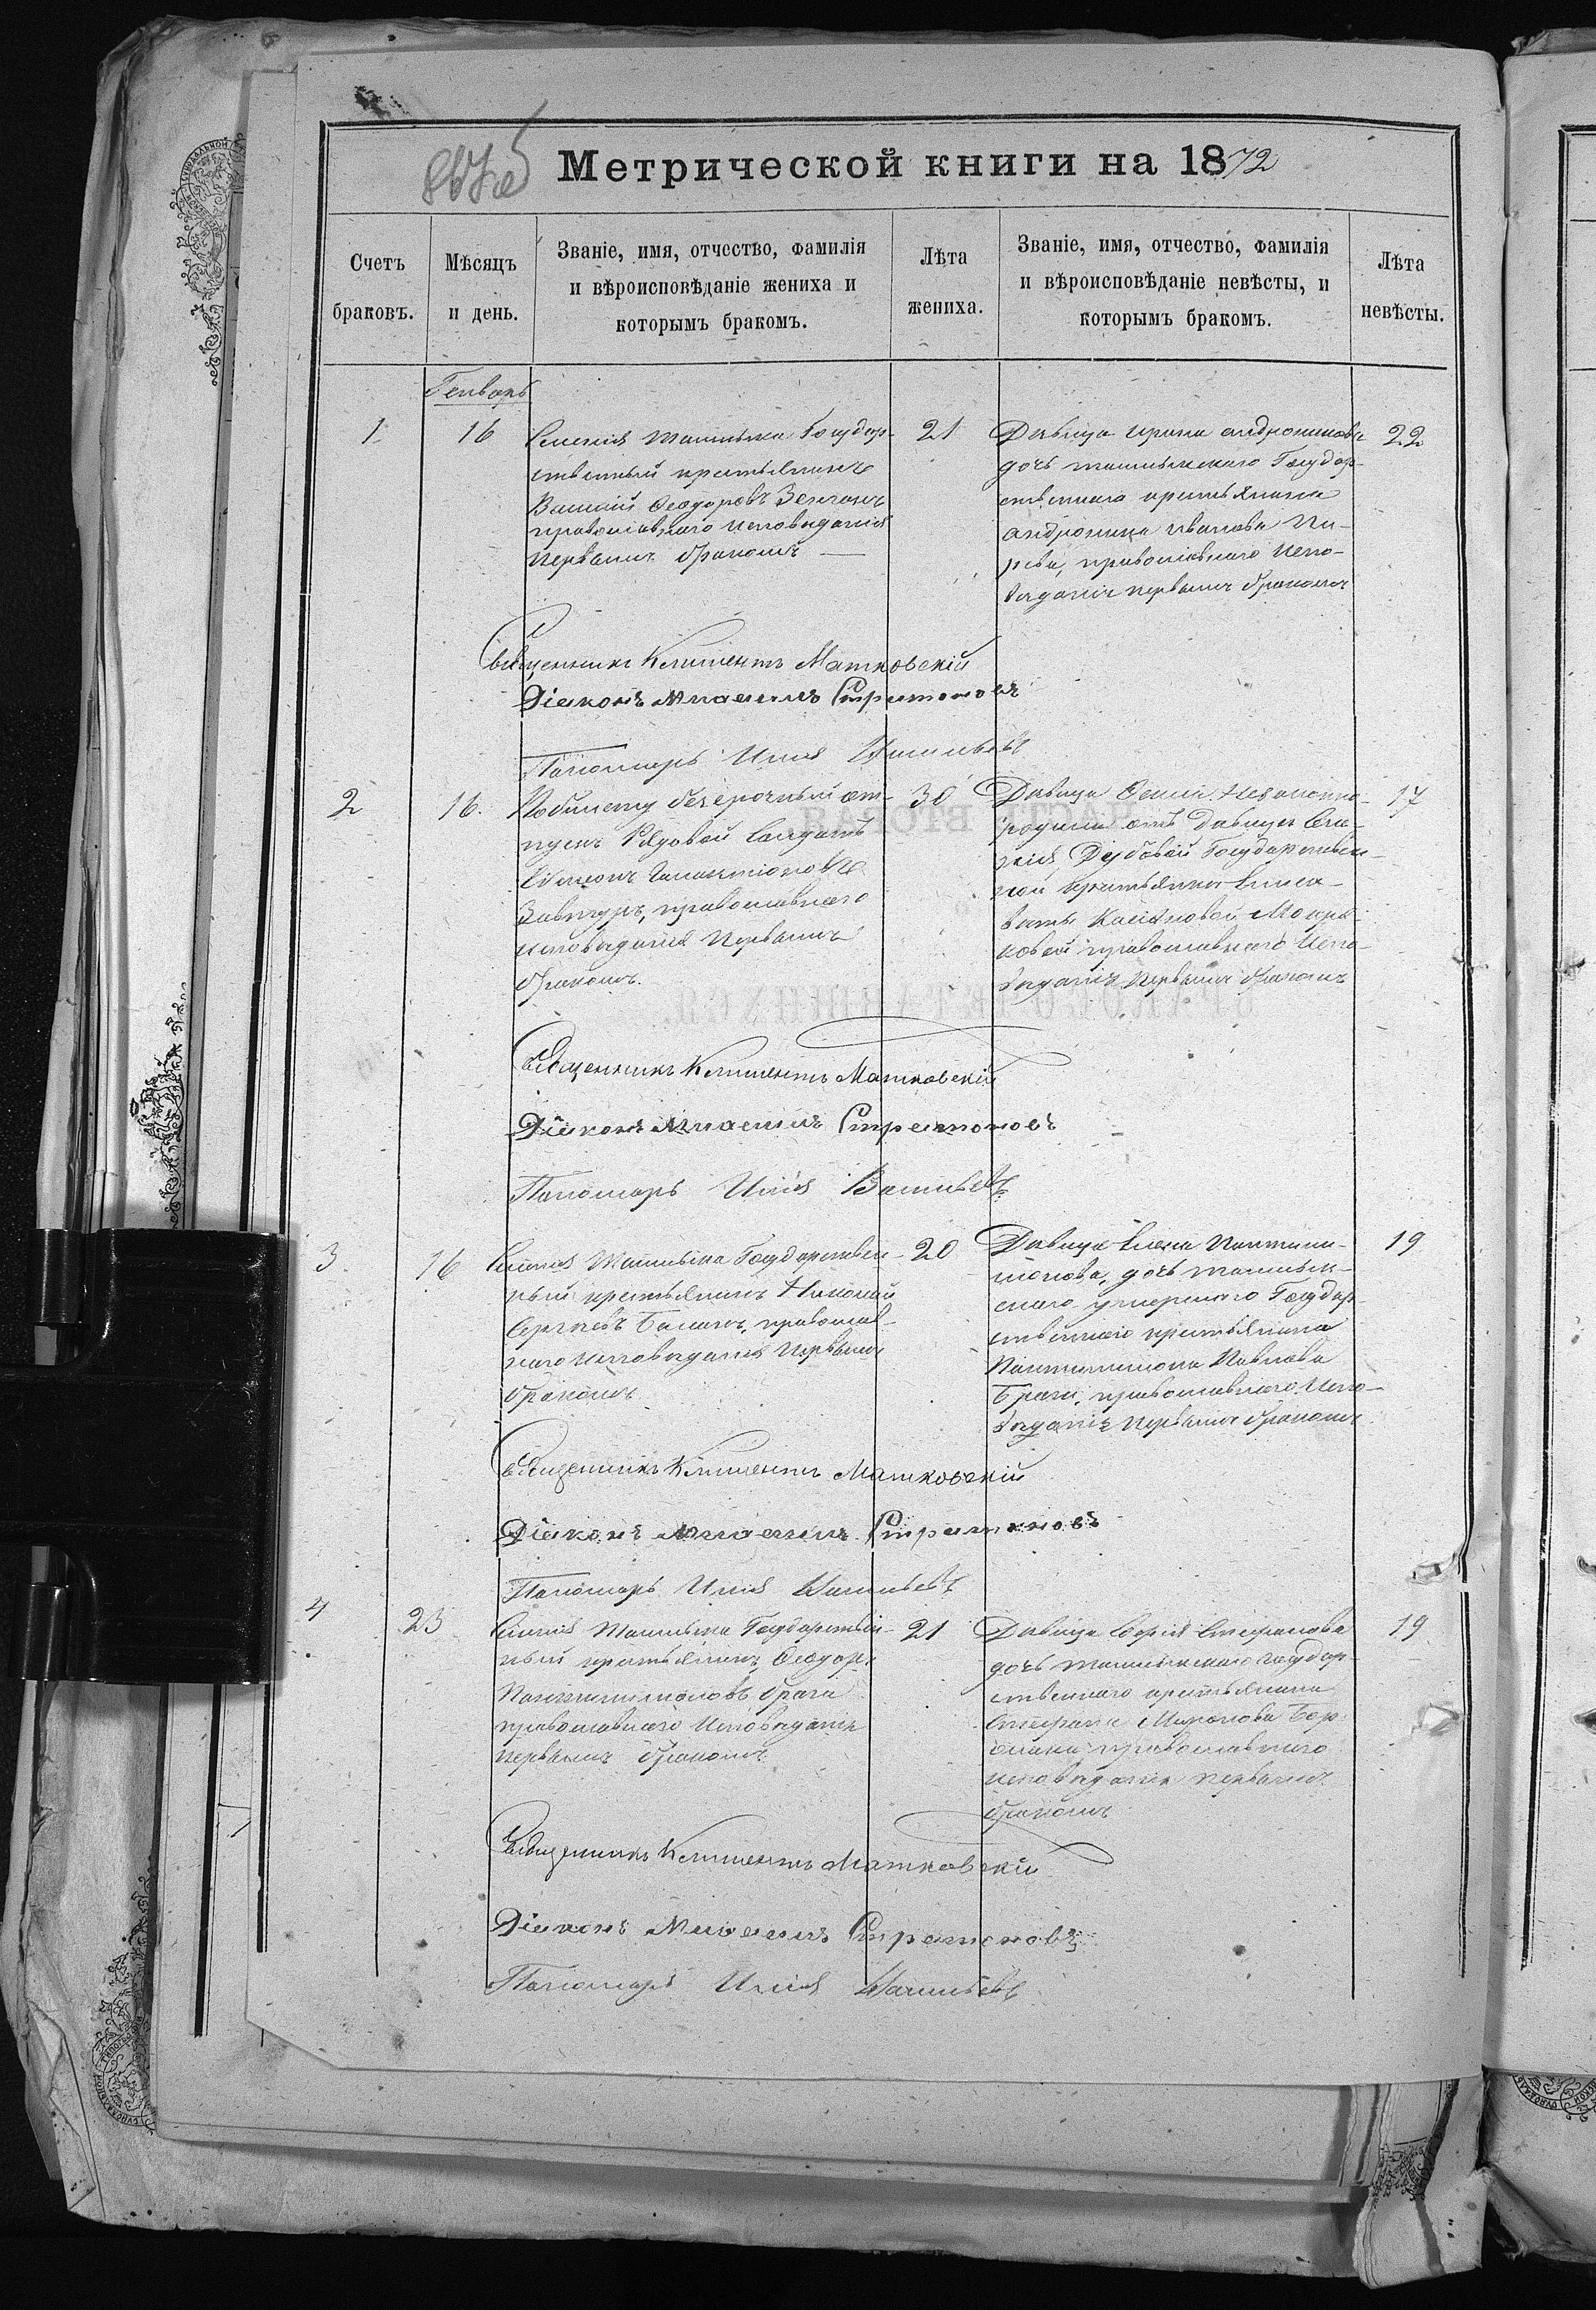 Метрической книги на 1872
Счетъ браковъ.
Мѣсяцъ и день.
Званіе, имя, отчество, фамилія
и вѣроисповѣданіе жениха и
которымъ бракомъ.
Лѣта жениха.
Званіе, имя, отчество, фамилія
и вѣроисповѣданіе невѣсты, и
которымъ бракомъ.
Лѣта невѣсты.
Генварь
1
16
Селенія Ташлыка Государ-
ственный крестьянинъ
Василій Феодоровъ
православнаго исповѣданія
первымъ бракомъ
21
Дѣвица Ирина Андроникова
дочь ташлыкскаго Государ-
ственнаго крестьянина
Андроника Иванова
православнаго испо-
вѣданія первымъ бракомъ
22
Священникъ Климентъ Матковскій
Діаконъ Михаилъ Стратоновъ
Паномарь Илія Васильевъ
2
16.
безсрочный от-
пускъ Рядовой Солдатъ
Симеонъ
православнаго
исповѣданія первымъ
бракомъ.
30
Дѣвица Незаконно-
родная отъ дѣвицы
Государствен-
ной крестьянки Елиса-
веты
православнаго испо-
вѣданія первымъ бракомъ
17
Священникъ Климентъ Матковскій
Діаконъ Михаилъ Стратоновъ
Паномарь Илія Васильевъ
3
16
Селенія Ташлыка Государствен-
ный крестьянинъ Николай
Сергѣевъ Баланъ, православ-
наго исповѣданія первымъ
бракомъ
20
Дѣвица Елена Пантили-
монова, дочь ташлык-
скаго умершаго Государ-
ственнаго крестьянина
Пантилимона Павлова
Брага, православнаго испо-
вѣданія первымъ бракомъ
19
Священникъ Климентъ Матковскій
Діаконъ Михаилъ Стратоновъ
Паномарь Илія Васильевъ
4
23
Селенія Ташлыка Государствен-
ный крестьянинъ Феодоръ
Пантилимоновъ Брага
православнаго исповѣданія
первымъ бракомъ
21
Дѣвица Софія Стефанова
дочь ташлыкскаго государ-
ственнаго крестьянина
Стефана Миронова
православнаго
исповѣданія первымъ
бракомъ
19
Священникъ Климентъ Матковскій
Діаконъ Михаилъ Стратоновъ
Паномарь Илія Васильевъ